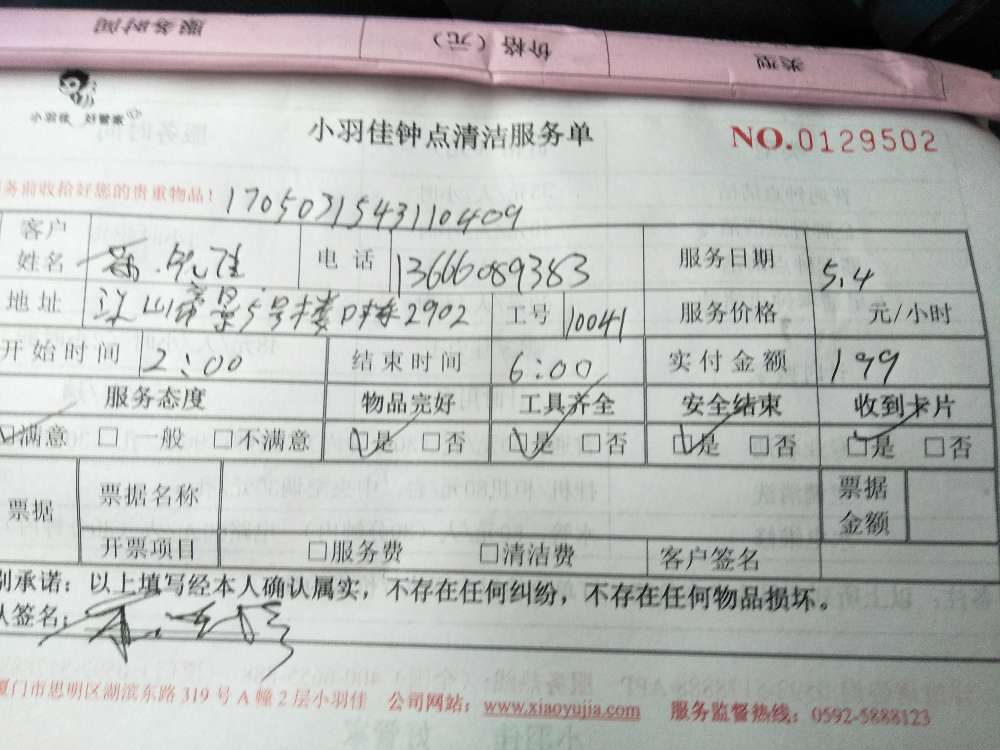 服务时间 价格(元) 类型
小羽佳 好管家
小羽佳钟点清洁服务单 NO.0129502
务前收拾好您的贵重物品! 1705031543110409
客户姓名 电话 13666089383 服务日期 5.4
地址 5号楼D栋2902 工号 10041 服务价格 元/小时
开始时间 2:00 结束时间 6:00 实付金额 199
服务态度 物品完好 工具齐全 安全结束 收到卡片
☑满意 □一般 □不满意 ☑是 □否 ☑是 □否 ☑是 □否 ☑是 □否
票据 票据名称 票据金额
开票项目 □服务费 □清洁费 客户签名
别承诺:以上填写经本人确认属实,不存在任何纠纷,不存在任何物品损坏。
人签名:
厦门市思明区湖滨东路319号A幢2层小羽佳 公司网站:www.xiaoyujia.com 服务监督热线:0592-5888123